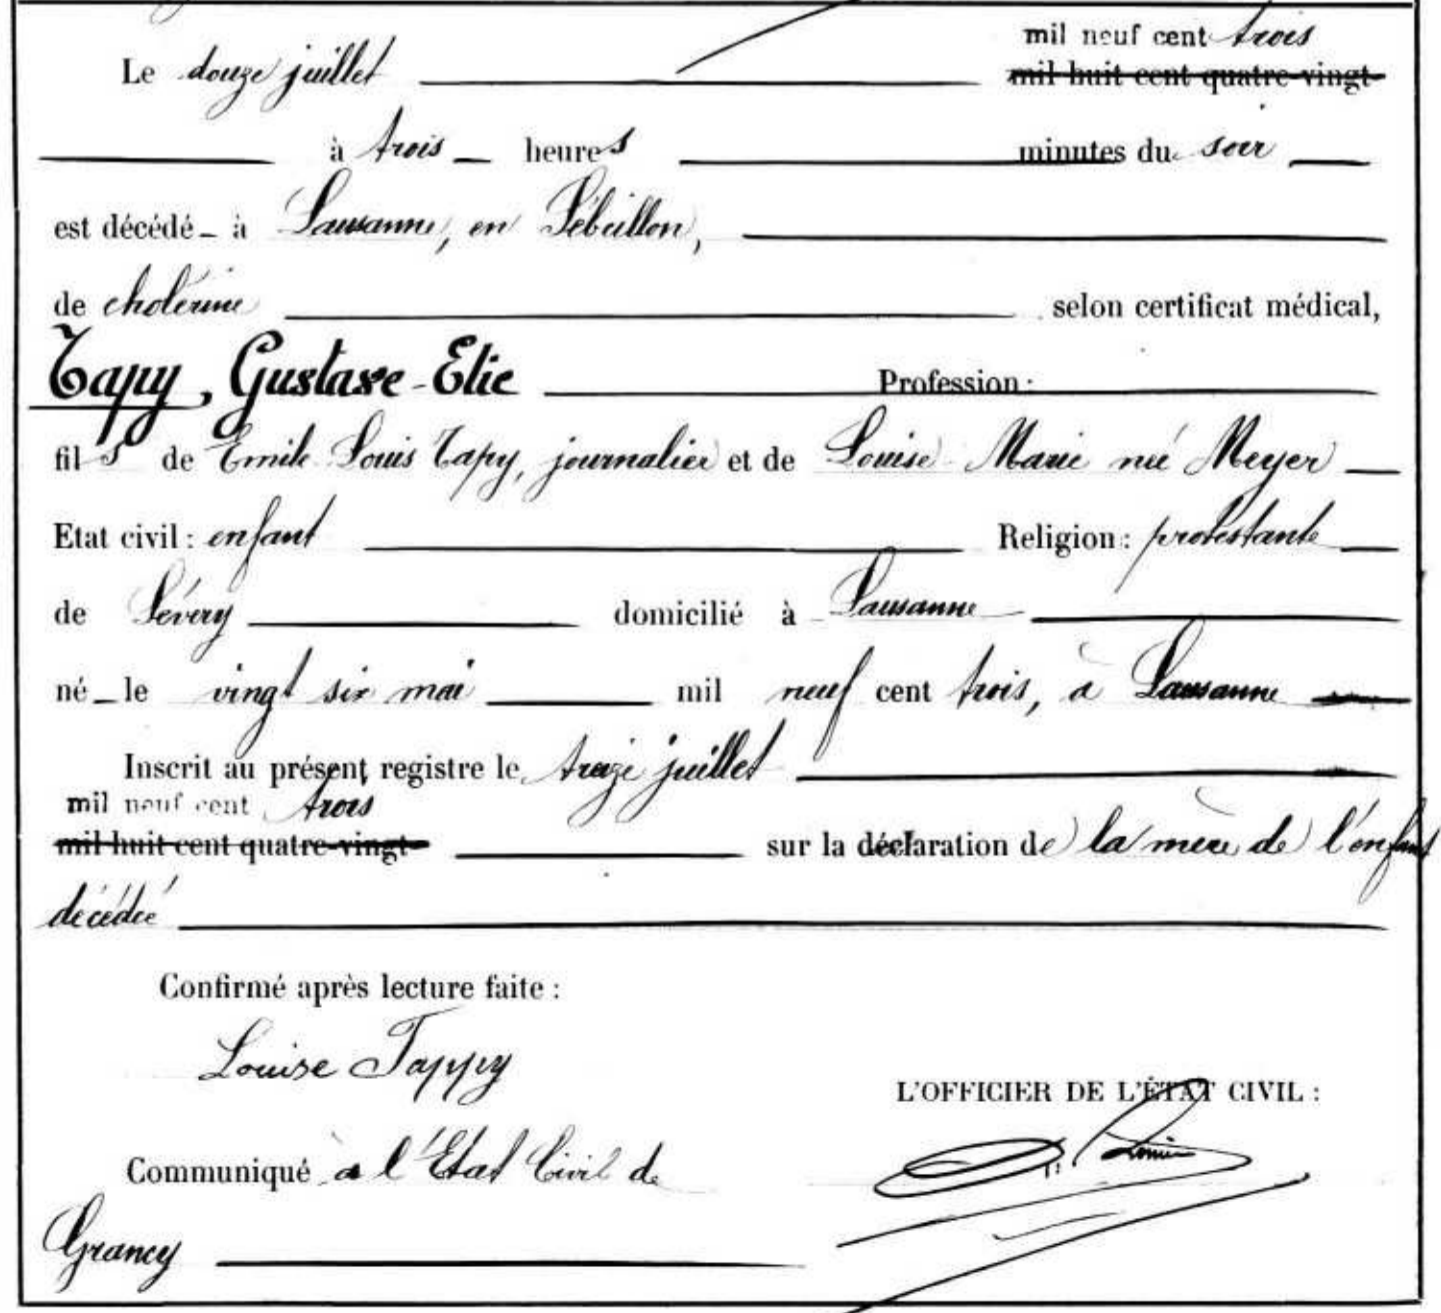 mil neuf cent trois
Le douze juillet mil huit cent quatre-vingt-
à trois heures minutes du soir
est décédé à Lausanne, en Sébeillon,
de cholérine selon certificat médical,
Tapy, Gustave-Elie Profession:
fils de Emile Louis Tapy, journalier et de Louise Marie née Meyer
Etat civil: enfant Religion: protestante
de Sévery domicilié à Lausanne
né le vingt six mai mil neuf cent trois, à Lausanne
Inscrit au présent registre le treize juillet
mil neuf cent trois
mil huit cent quatre-vingt- sur la déclaration de la mère de l'enfant
décédé
Confirmé après lecture faite:
Louise Tappy
L'OFFICIER DE L'ÉTAT CIVIL:
Communiqué à l'Etat Civil de
Grancy